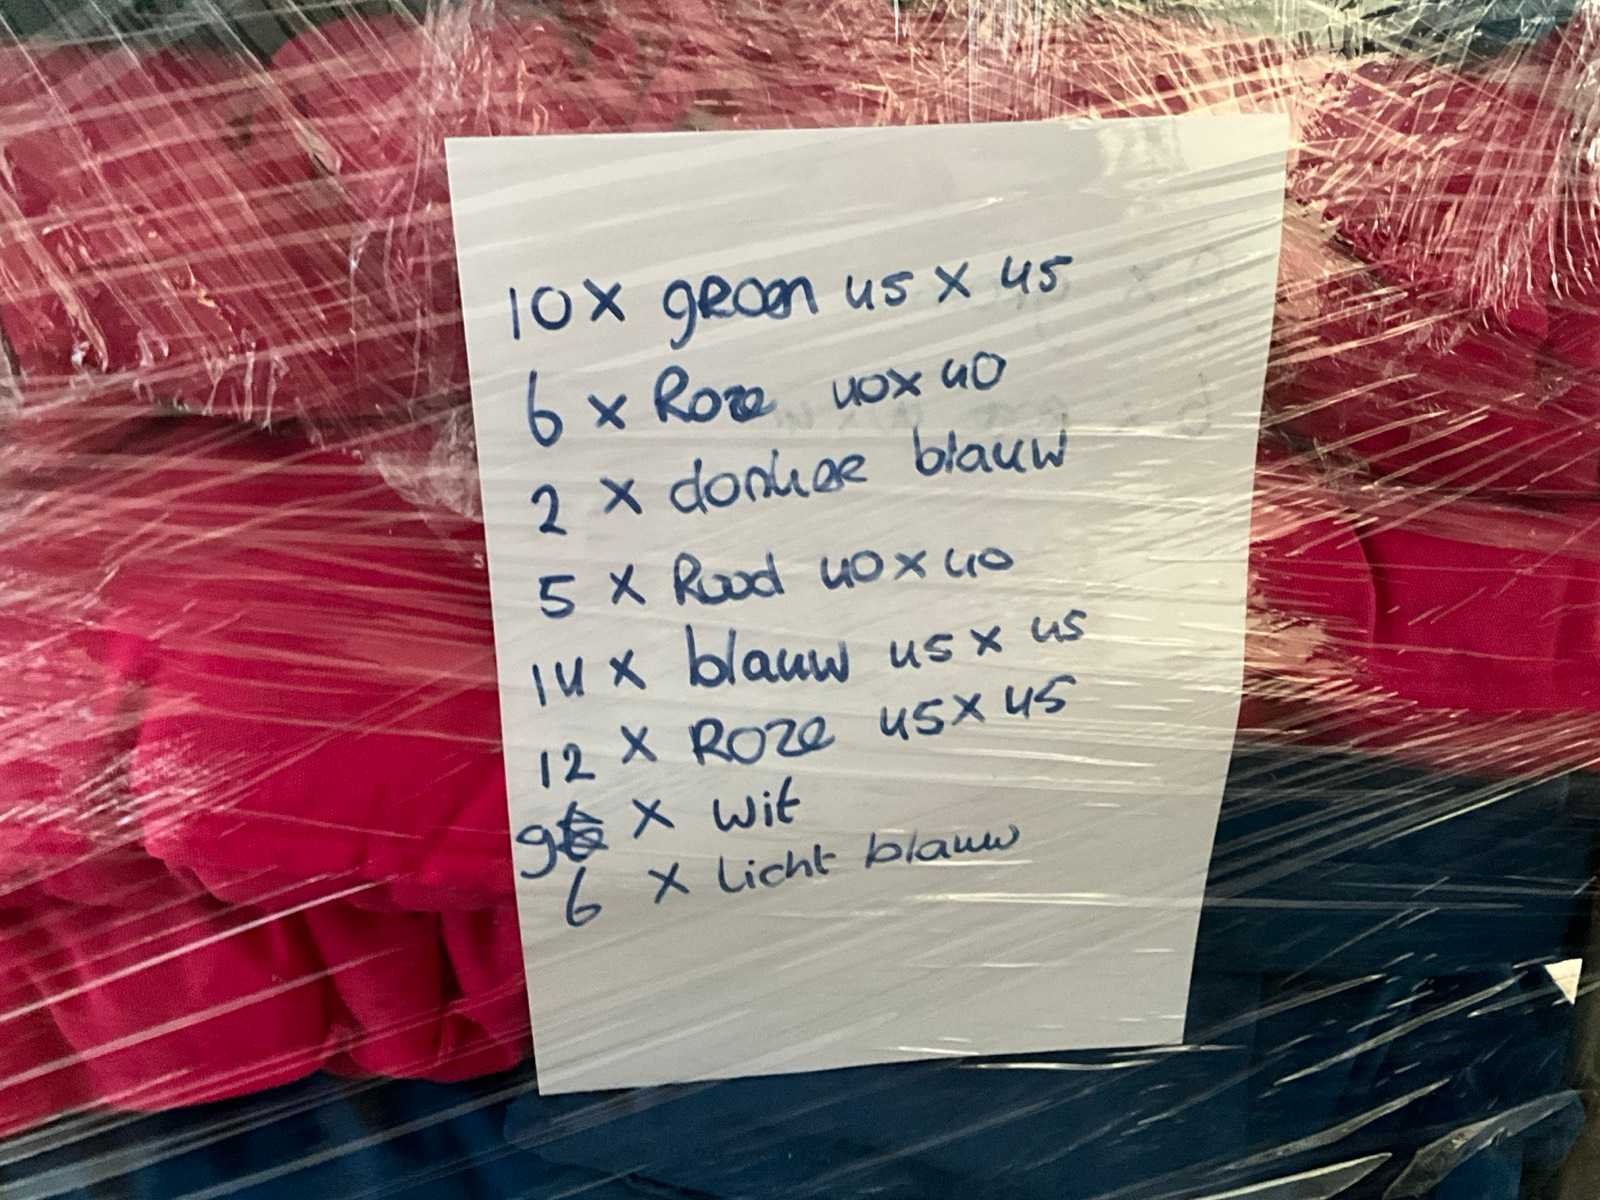 10 x groen 45 x 45
6 x Roze 40 x 40
2 x donker blauw
5 x Rood 40 x 40
14 x blauw 45 x 45
12 x Roze 45 x 45
9 x wit
6 x Licht blauw